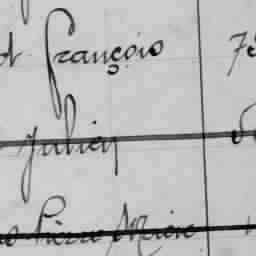 François
Julien
Pierre Marie